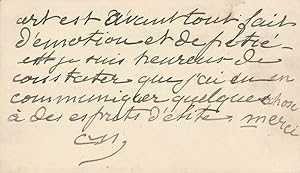 art est avant tout fait
d'émotion et de piété -
et je suis heureux de
constater que j'ai eu en
communiquer quelque chose
à des esprits d'élite, merci